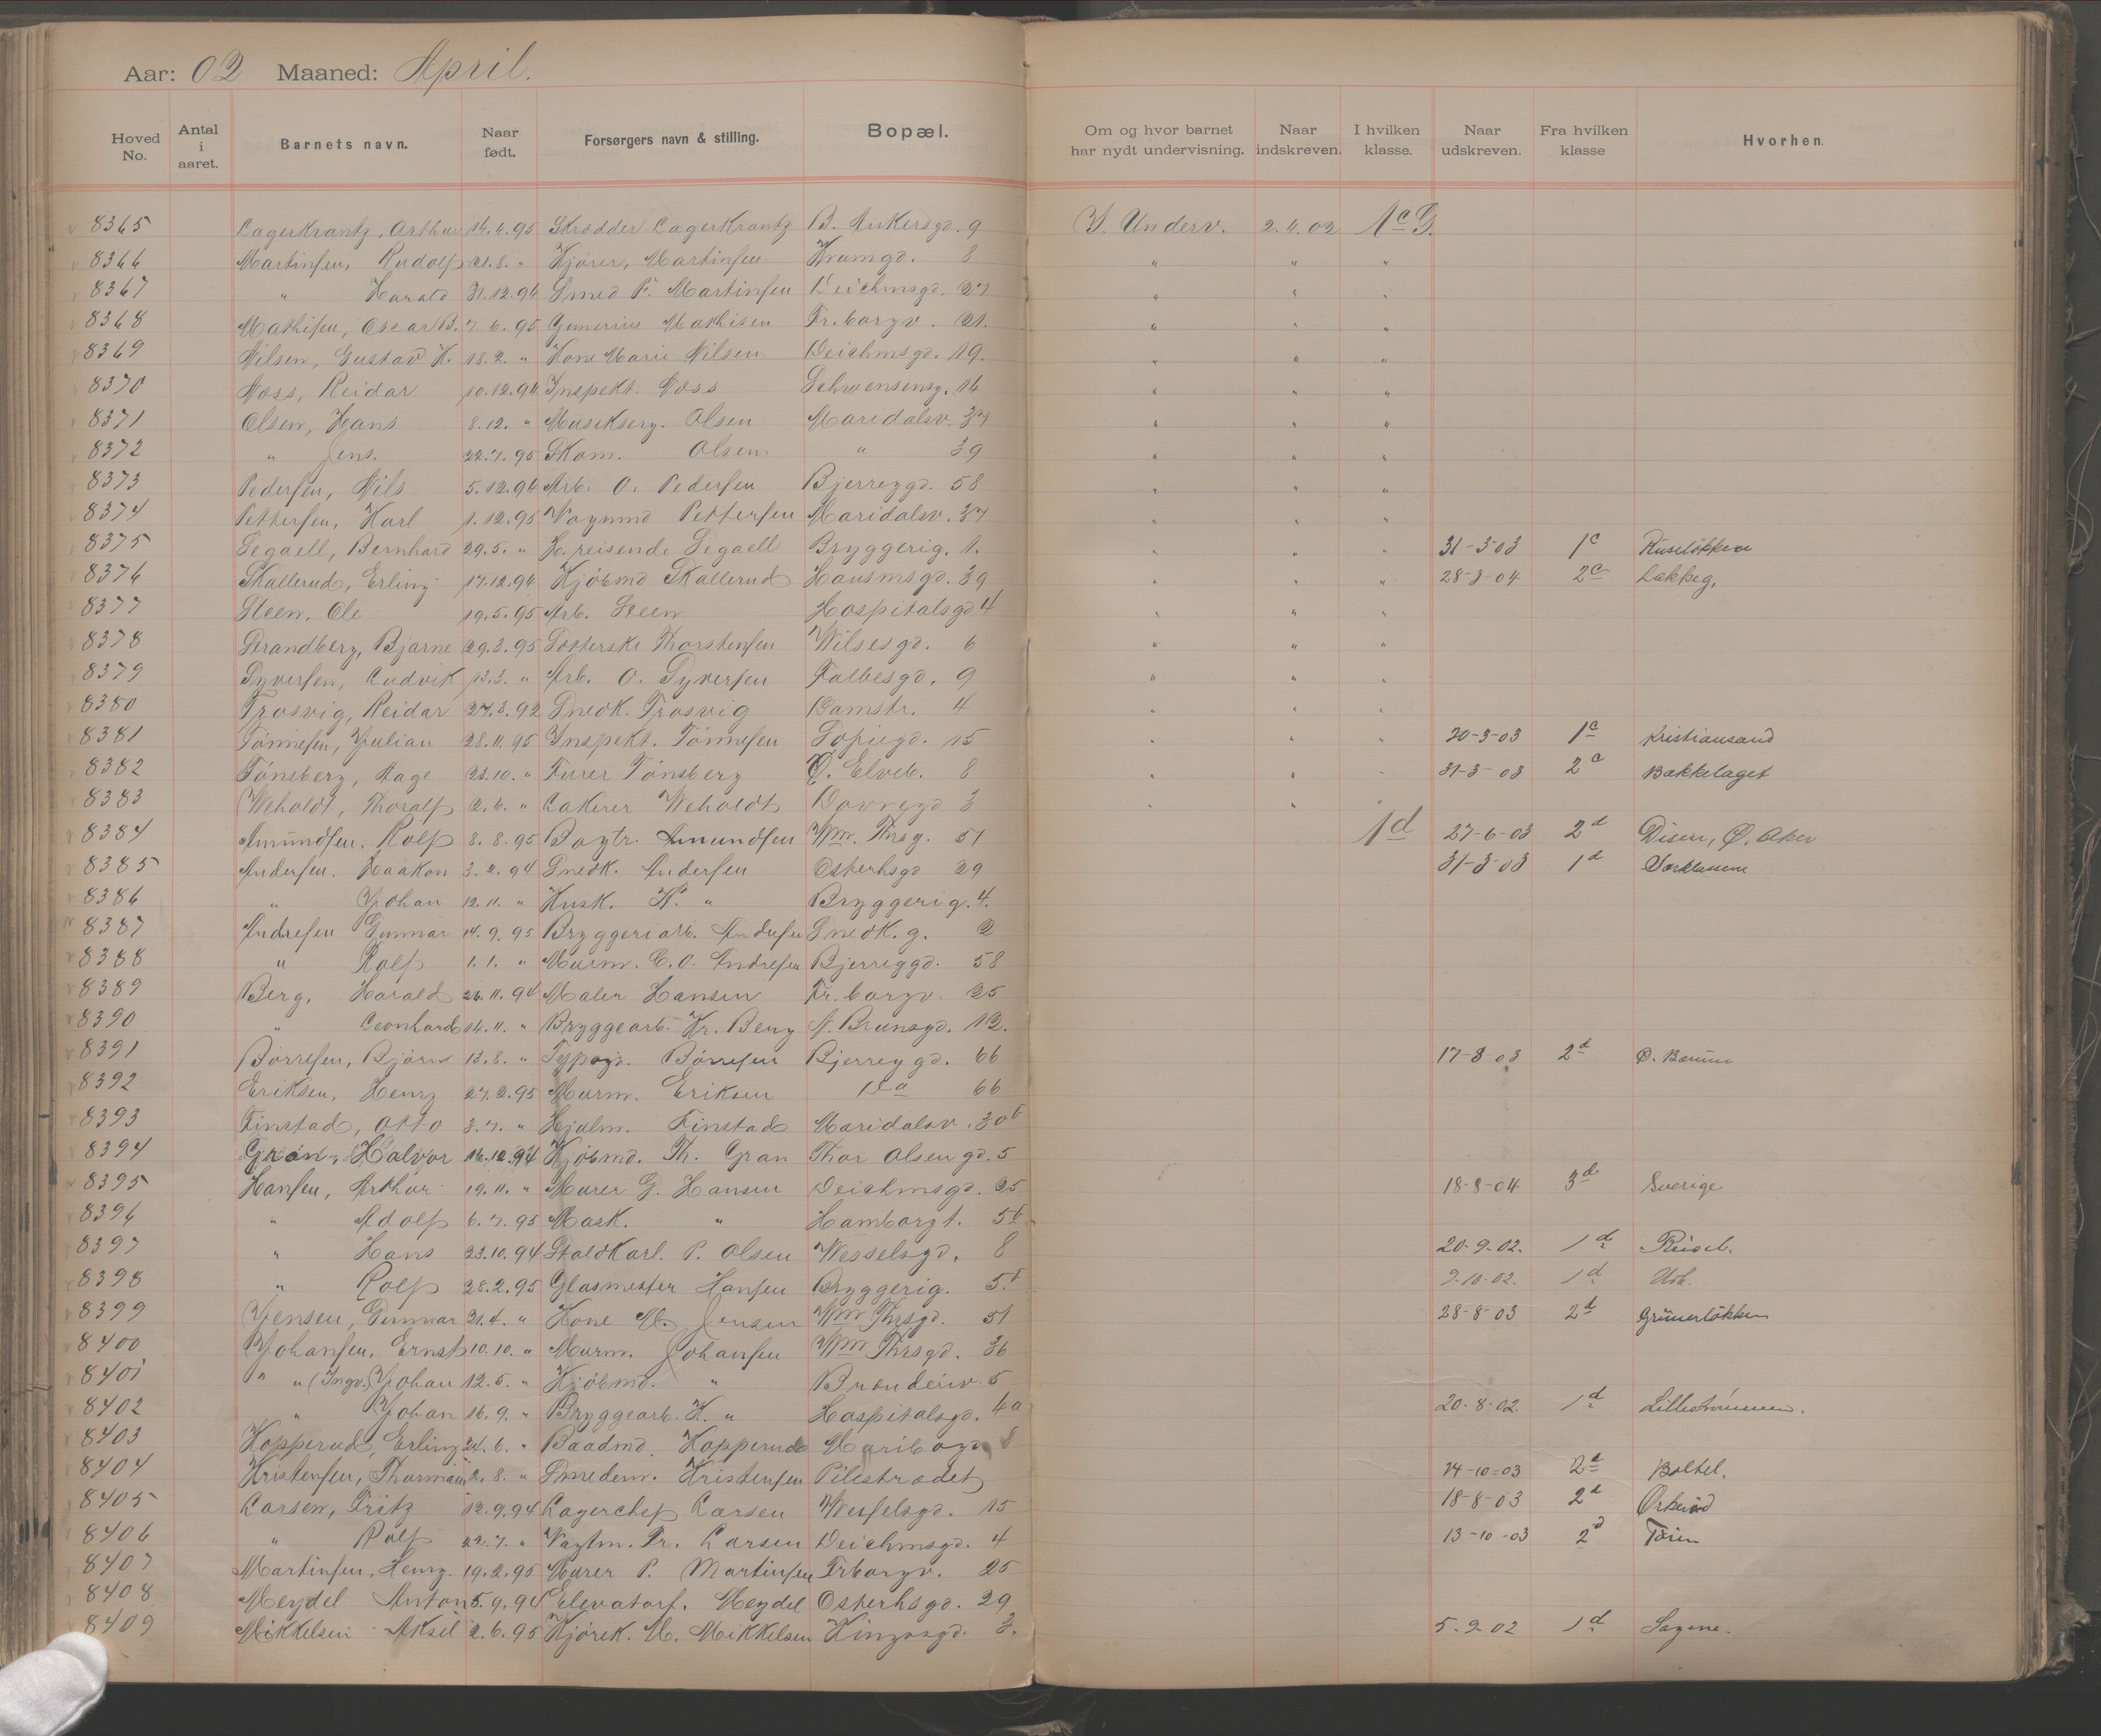 Aar: 02 Maaned: April.
Hoved No. Antal i aaret. Barnets navn. Naar født. Forsørgers navn & stilling. Bopæl. Om og hvor barnet har nydt undervisning. Naar indskreven. I hvilken klasse. Naar udskreven. Fra hvilken klasse Hvorhen.
8365 Lagerkrantz, Arthur 14.4.95 Skrædder Lagerkrantz B. Ankersgd. 9 I. Underv. 2.4.02 1c G.
8366 Martinsen, Rudolf 21.8. " Kjører, Martinsen Krumgd. 8 " " "
8367 " Harald 31.12.94 Smed P. Martinsen Deichmsgd. 27 " " "
8368 Mathisen, Oscar B. 7.6.95 Gunerius Mathisen Fr.borgv. 21. " " "
8369 Nilsen, Gustav H. 18.2. " Kone Marie Nilsen Deichmsgd. 19. " " "
8370 Næss, Reidar 10.12.94 Inspekt. Næss Schwensensg. 14 " " "
8371 Olsen, Hans 8.12. " Musikserg. Olsen Maridalsv. 37 " " "
8372 " Jens. 22.7.95 Skom. Olsen " 39 " " "
8373 Pedersen, Nils 5.12.94 Arb. O. Pedersen Bjerregd. 58 " " "
8374 Pettersen, Karl 1.12.95 Vognmd Pettersen Maridalsv. 37 " " "
8375 Segaell, Bernhard 29.5. " H.reisende Segaell Bryggerig. 1. " " " 31-3-03 1c Ruseløkken
8376 Skallerud, Erling 17.12.94 Kjøbmd Skallerud Hausmsgd. 39 " " " 28-3-04 2c Lakkeg,
8377 Steen, Ole 19.5.95 Arb. Steen Hospitalsgd 4 " " "
8378 Strandberg, Bjarne 29.3.95 Thorstensen Wilsesgd. 6 " " "
8379 Syversen, Ludvik 13.3. " Arb. O. Syversen Falbesgd. 9 " " "
8380 Trosvig, Reidar 27.3.92 Snedk. Trosvig Damstr. 4 " " "
8381 Tønnesen, Julian 28.11.95 Inspekt. Tønnesen Sofiegd. 15 " " " 20-3-03 1c Kristiansand
8382 Tønsberg, Aage 23.10. " Furer Tønsberg Ø. Elveb. 8 " " " 31-3-03 2c Bækkelaget
8383 Weholdt, Thoralf 2.6. " Lakerer Weholdt Dovregd 3 " " "
8384 Amundsen, Rolf 8.8.95 Bogtr. Amundsen Wm. Thrsg. 51 1d 27-6-03 2d Disen, Ø. Aker
8385 Andersen, Haakon 3.2.94 Snedk. Andersen Osterhsgd 29 31-3-03 1d Særklassene
8386 " Johan 12.11. " Kusk. K. " Bryggerig. 4.
8387 Andresen Gunnar 14.9.95 Bryggeriarb. Andresen Snedk.g. 2
8388 " Rolf 1.1. " Murm. C.O. Andresen Bjerreggd. 58
8389 Berg, Harald 26.11.94 Maler Hansen Fr.borgv. 25
8390 " Leonhard 14.11. " Bryggearb. Kr. Berg N. Brunsgd. 12.
8391 Børresen, Bjørn 13.8. " Typogr. Børresen Bjerregd. 66 17-8 03 2d Ø. Bærum
8392 Eriksen, Henry 27.2.95 Murm. Eriksen 66
8393 Finstad, Otto 3.7. " Hjulm. Finstad Maridalsv. 30b
8394 Gran, Halvor 16.12.94 Kjøbmd. Th. Gran Thor Olsengd. 5
8395 Hansen, Arthur 19.11. " Murer G. Hansen Deichmsgd. 25 18-8-04 3d Sverige
8396 " Adolf 6.7.95 Mask. " Hamborgt. 5b
8397 " Hans 23.10.94 Staldkarl. P. Olsen Wesselsgd. 8 20-9-02. 1d
8398 " Rolf 28.2.95 Glasmester Hansen Bryggerig. 5b 9-10-02. 1d
8399 Jensen, Gunnar 21.4. " Kone M. Jensen Wm Thrsgd. 51 28-8-03 2d Grünerløkken
8400 Johansen, Ernst 10.10. " Murm. Johansen Wm Thrsgd. 36
8401 " " (Ingv.) Johan 12.5. " Kjøbmd. " 5
8402 " Johan 16.9. " Bryggearb. K. " Hospitalsgd. 4a 20-8-02. 1d Lillestrømmen.
8403 Kopperud, Erling 24.6. " Baadmd. Kopperud 8
8404 Kristensen, Thurmann 2.8. " Smedem. Kristensen Pilestrædet 24-10-03 2d
8405 Larsen, Fritz 12.9.94 Lagerchef Larsen Wesselsgd. 15 18-8-03 2d
8406 " Rolf 22.7. " Vagtm. Fr. Larsen Deichmsgd. 4 13-10-03 2d Tøien
8407 Martinsen, Henry. 19.2.95 Murer P. Martinsen Frborgv. 25
8408 Meydel Anton 5.9.94 Elevatorf. Meydel Osterhsgd. 29
8409 Mikkelsen Aksel 2.6.95 Kjørek. M. Mikkelsen Kingosgd. 3. 5-9-02 1d Sagene.